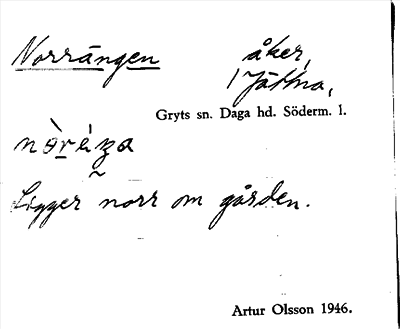 Norrängen åker,
1 Jättna,
Gryts sn. Daga hd. Söderm. l.
Ligger norr om gården.
Artur Olsson 1946.